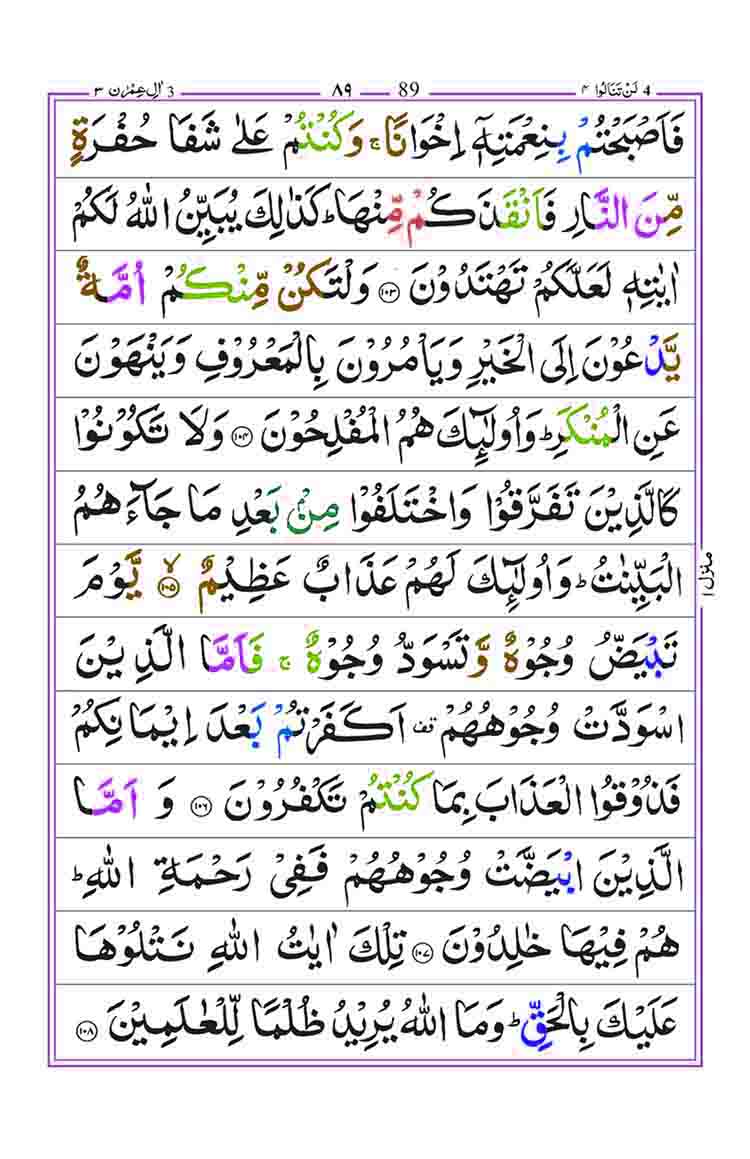 4 لَنْ تَنَالُوا ۴ 89 ۸۹ 3 اٰلِ عِمْرٰن ۳
فَاَصْبَحْتُمْ بِنِعْمَتِهٖۤ اِخْوَانًا ۚ وَكُنْتُمْ عَلٰى شَفَا حُفْرَةٍ
مِّنَ النَّارِ فَاَنْقَذَكُمْ مِّنْهَا ؕ كَذٰلِكَ يُبَيِّنُ اللّٰهُ لَكُمْ
اٰيٰتِهٖ لَعَلَّكُمْ تَهْتَدُوْنَ ﴿۱۰۳﴾ وَلْتَكُنْ مِّنْكُمْ اُمَّةٌ
يَّدْعُوْنَ اِلَى الْخَيْرِ وَيَاْمُرُوْنَ بِالْمَعْرُوْفِ وَيَنْهَوْنَ
عَنِ الْمُنْكَرِ ؕ وَاُولٰٓئِكَ هُمُ الْمُفْلِحُوْنَ ﴿۱۰۴﴾ وَلَا تَكُوْنُوْا
كَالَّذِيْنَ تَفَرَّقُوْا وَاخْتَلَفُوْا مِنْۢ بَعْدِ مَا جَآءَهُمُ
الْبَيِّنٰتُ ؕ وَاُولٰٓئِكَ لَهُمْ عَذَابٌ عَظِيْمٌ ﴿۱۰۵﴾ ۙ يَّوْمَ
تَبْيَضُّ وُجُوْهٌ وَّتَسْوَدُّ وُجُوْهٌ ۚ فَاَمَّا الَّذِيْنَ
اسْوَدَّتْ وُجُوْهُهُمْ قف اَكَفَرْتُمْ بَعْدَ اِيْمَانِكُمْ
فَذُوْقُوا الْعَذَابَ بِمَا كُنْتُمْ تَكْفُرُوْنَ ﴿۱۰۶﴾ وَ اَمَّا
الَّذِيْنَ ابْيَضَّتْ وُجُوْهُهُمْ فَفِيْ رَحْمَةِ اللّٰهِ ؕ
هُمْ فِيْهَا خٰلِدُوْنَ ﴿۱۰۷﴾ تِلْكَ اٰيٰتُ اللّٰهِ نَتْلُوْهَا
عَلَيْكَ بِالْحَقِّ ؕ وَمَا اللّٰهُ يُرِيْدُ ظُلْمًا لِّلْعٰلَمِيْنَ ﴿۱۰۸﴾
منزل ۱